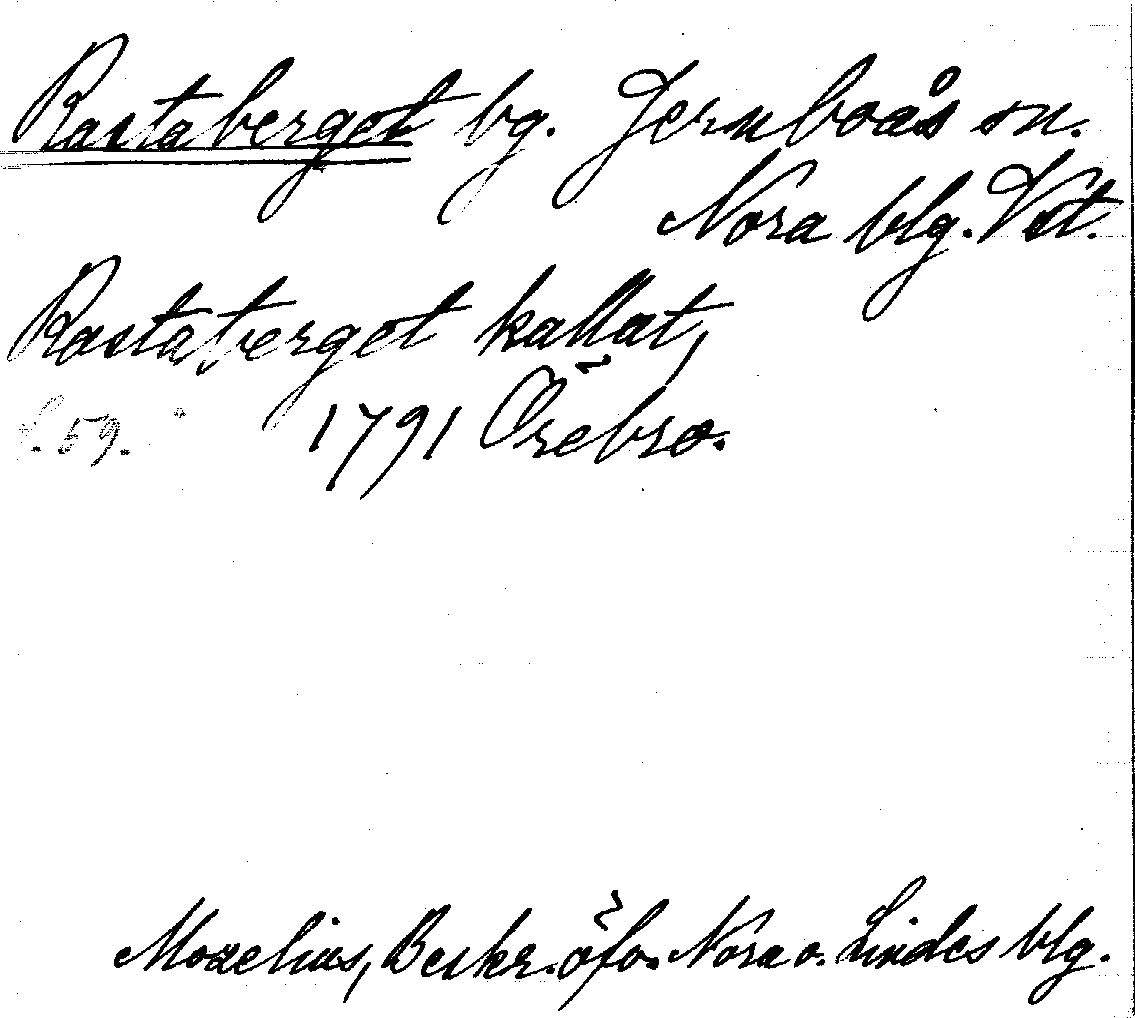 Rastaberget bg. Jernboås sn.
Nora blg. Vst.
Rastaberget kallat,
s. 59. 1791 Örebro.
Moxelius, Beskr. öfv. Nora o. Lindes blg.